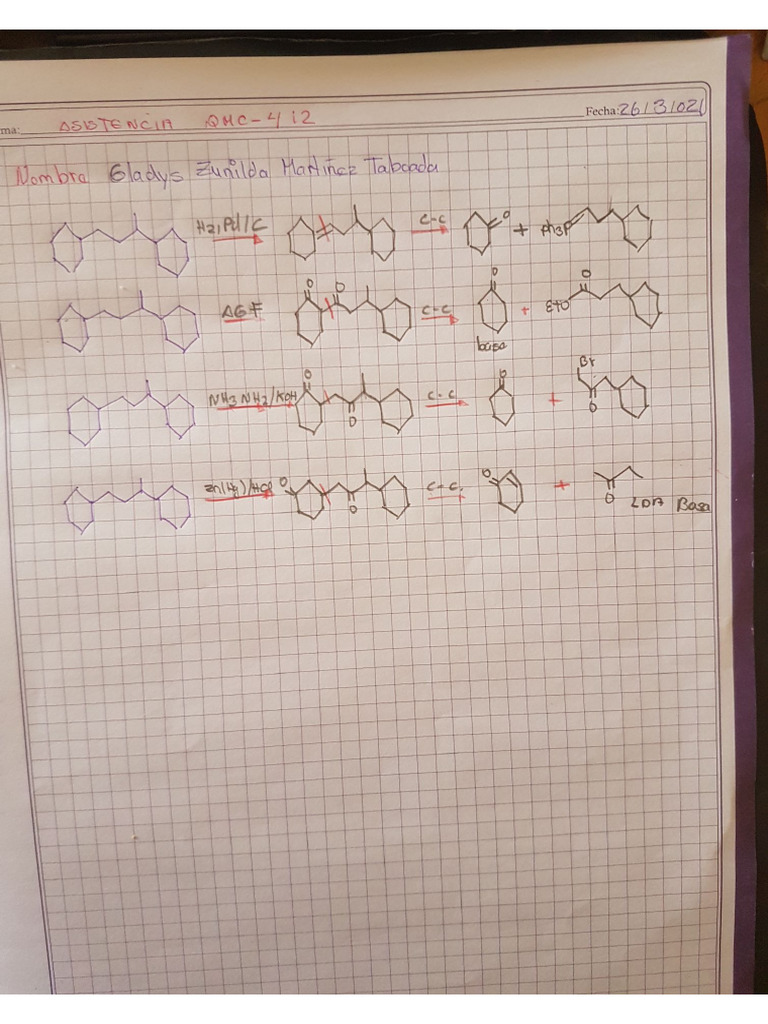 ma: ASISTENCIA QMC-412 Fecha: 26/3/021
Nombre Gladys Zunilda Martinez Taboada
H2, Pd/C C-C O + Ph3P
O O C-C O + EtO O
AGF
basa
NH3 NH2/KOH O O C-C O + Br O
Zn(Hg)/HCl O O C-C. O + O LDA Basa